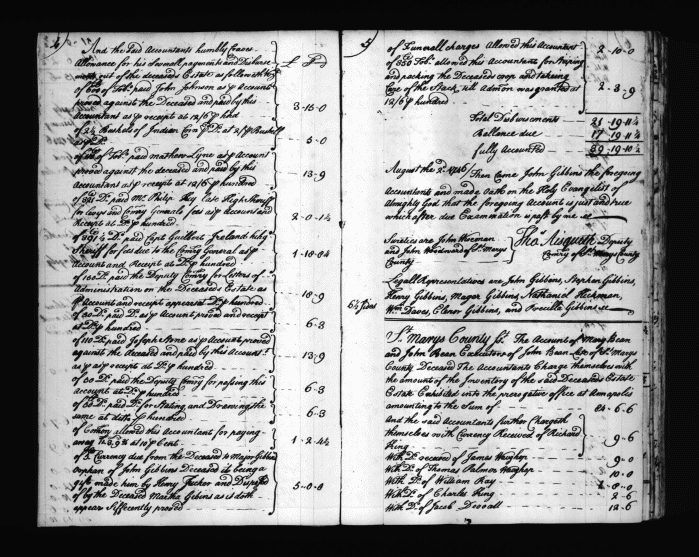 4
And the Said Accountants humbly Craves
Allowance for his Severall payments and Disburse
ments out of the deceased Estate as followeth Viz
of 600 of Tobo. paid John Johnson as p Account
proved against the Deceased and paid by this
Accountant as p receipt at 12/6 p hhd 3-15-0
of 2½ Bushels of Indian Corn p Do. at 2/ p Bushell
5-0
of Tobo. paid Matthew Lyne as p Account
proved against the deceased and paid by this
Accountant as p receipt at 12/6 p hundred 13-9
of 321 Do. paid Mr. Philip Key late High Sheriff
for Levys and Comry Generals fees as p account and
Receipt at Do. p hundred 2-0-1½
paid Capt Guilbert Ireland high
Sheriff for fees due to the Comry General as p
Account and Receipt at Do. p hundred
of 100 Do. paid the Deputy Comry for Letters of
Administration on the Deceaseds Estate as
p Account and receipt appears at Do. p hundred
of Do. paid Do. as p Account proved and receipt
at Do. p hundred 6-3
of 110 Do. paid Joseph as p Account proved
against the Deceased and paid by this Accountt.
as p receipt at Do. p hundred 13-9
of 50 Do. paid the Deputy Comry for passing this
account at Do. p hundred 6-3
of 50 Do. paid Do. for Stating and Drawing the
same at ditto p hundred 6-3
of Comon allowed this Accountant for paying
away at 10 p Cent 1-2-4½
of Do. Curency due from the Deceased to Major Gibbins
Orphan of John Gibbins Deceased it being a
gift made him by Henry Tucker and Dispos'd
of by the Deceased Martha Gibins as it doth
appear Sufficently proved 5-0-0
5
of Funerall charges Allowed this Accountant 2-10-0
of 350 Tobo. allowed this Accountant for Striping
and packing the Deceaseds crop and takeing
Care of the Stock till Admon was granted at
12/6 p hundred 2-3-9
Total Disbursements 21-19-11¼
Ballance due 17-19-11¼
fully Accounted 39-19-10½
August the 2d. 1746 Then Came John Gibbins the foregoing
Accountant and made oath on the Holy Evangelist of
Almighty God that the foregoing Account is just and true
which after due Examination is past by me
Sureties are John Horeman
and John Woodward of St. Marys
County
Thos. Aisquith Deputy
Comry of St. Marys County
Legall Representatives are John Gibbins, Stephen Gibbins,
Henry Gibbins, Magor Gibbins, Nathaniel Hickman,
Wm. Daves, Elenor Gibbins, and Precilla Gibbins
6½ Sides
St. Marys County Ss. The Account of Mary Bean
and John Bean Executors of John Bean Late of St. Marys
County Deceased The Accountants Charge themselves with
the amount of the Inventory of the said Deceaseds Estate
Estate Exhibited into the prerogative office at Annapolis
amounting to the Sum of
And the said Accountants further Chargeth
themselves with Curency Received of Richard
King 9-6
With Do. received of James Waughop 9-0
With Do. of Thomas Palmer Waughop 10-0
With Do. of William Kay
With Do. of Charles King 2-6
With Do. of Jacob 12-6